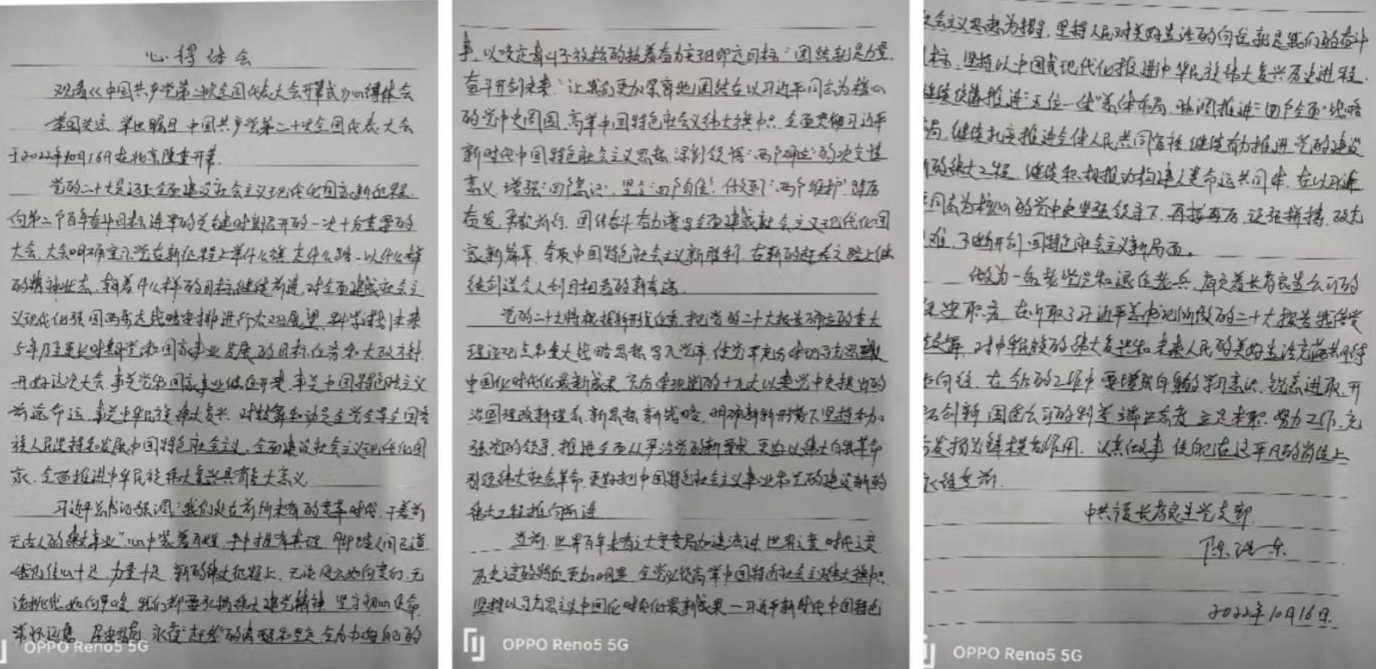 心得体会
观看《中国共产党第二十次全国代表大会开幕式》心得体会
举国关注，举世瞩目，中国共产党第二十次全国代表大会
于2022年10月16日在北京隆重开幕。
党的二十大是迈上全面建设社会主义现代化国家新征程，
向第二个百年奋斗目标进军的关键时刻召开的一次十分重要的
大会，大会明确宣示党在新征程上举什么旗、走什么路、以什么样
的精神状态、朝着什么样的目标继续前进，对全面建成社会主
义现代化强国两步走战略安排进行宏观展望，科学谋划未来
5年乃至更长时期党和国家事业发展的目标任务和大政方针
开好这次大会，事关党和国家事业继往开来，事关中国特色社会主义
前途命运，事关中华民族伟大复兴，对动员全党全军全国各
族人民坚持和发展中国特色社会主义，全面建设社会主义现代化国
家，全面推进中华民族伟大复兴具有重大意义
习近平总书记强调："我们处在前所未有的变革时代，干着前
无古人的伟大事业"心中装着百姓，手中握有真理，脚踏人间正道
我们信心十足，力量十足，新的伟大征程上，无论风云如何变幻，无
论挑战如何严峻，我们都要弘扬伟大建党精神，坚守初心使命
永葆"赶考"的清醒和坚定
OPPO Reno5 5G
"团结就是力量，
奋斗开创未来"让我们更加紧密地团结在以习近平同志为核心
的党中央周围，高举中国特色社会主义伟大旗帜，全面贯彻习近平
新时代中国特色社会主义思想，深刻领悟"两个确立"的决定性
意义，增强"四个意识"、坚定"四个自信"、做到"两个维护"踔厉
奋发，勇毅前行，团结奋斗奋力谱写全面建成社会主义现代化国
家新篇章，夺取中国特色社会主义新胜利，在新的赶考之路上继
续创造令人刮目相看的新奇迹
党的二十大将根据新形势任务，把党的二十大报告确立的重大
理论观点和重大战略思想写入党章，使党章充分体现马克思主义
中国化时代化最新成果，充分体现党的十九大以来党中央提出的
治国理政新理念、新思想、新战略，明确新形势下坚持和加
强党的领导，推进全面从严治党的新要求，更好以伟大自我革命
引领伟大社会革命，更好把中国特色社会主义事业和党的建设新的
伟大工程推向前进
当前，世界百年未有之大变局加速演进，世界之变、时代之变
历史之变的特征更加明显，全党必须高举中国特色社会主义伟大旗帜
坚持以马克思主义中国化时代化最新成果—习近平新时代中国特色
OPPO Reno5 5G
社会主义思想为指导，坚持人民对美好生活的向往就是我们的奋斗
目标，坚持以中国式现代化推进中华民族伟大复兴历史进程，
继续统筹推进"五位一体"总体布局，协调推进"四个全面"战略
布局，继续扎实推进全体人民共同富裕，继续有力推进党的建设
新的伟大工程，继续积极推动构建人类命运共同体，在以习近平
同志为核心的党中央坚强领导下，再接再厉，顽强拼搏，攻克
难，不断开创中国特色社会主义新局面。
做为一名老党员和退伍老兵，肩负着
在听取了习近平总书记所做的二十大报告我倍受
鼓舞，对中华民族的伟大复兴和未来人民的美好生活充满期待
和向往，在今后的工作中要增强自身的学习意识，锐意进取，开
拓创新，端正态度，立足本职，努力工作，充
分发挥先锋模范作用，
OPPO Reno5 5G
2022年10月16日